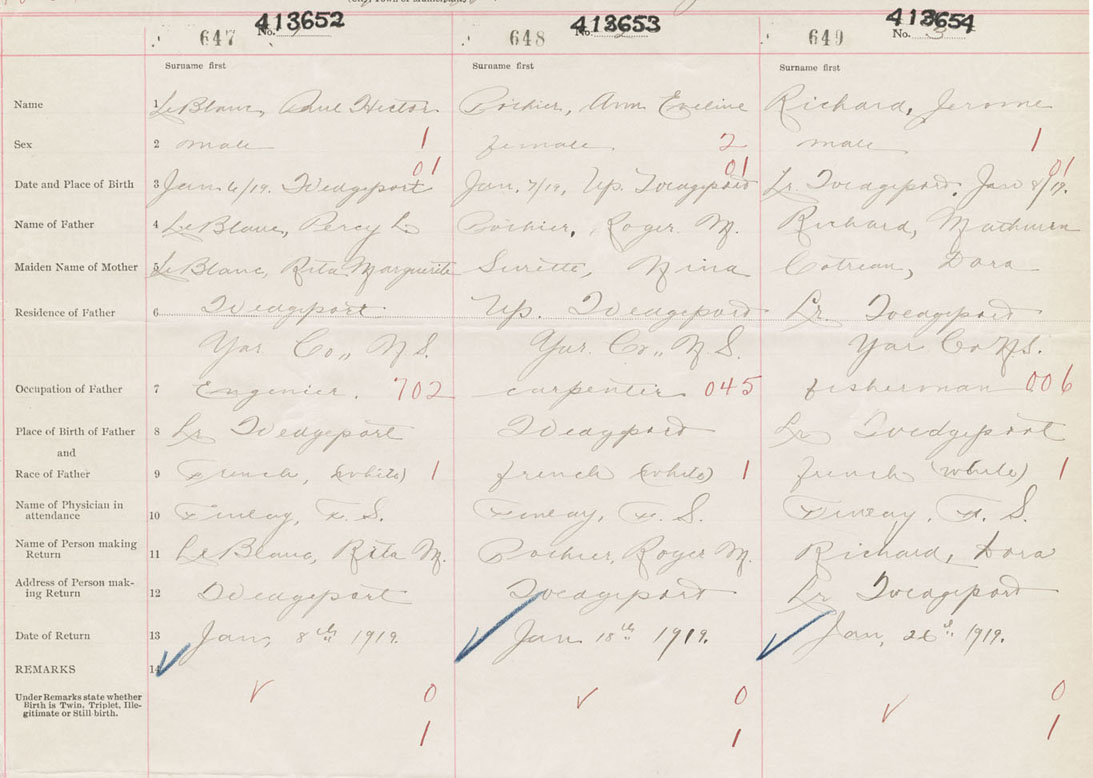 413652 413653 413654
647 No. 1 648 No. 2 649 No. 3
Surname first Surname first Surname first
Name 1 LeBlanc, Paul Hector Pothier, Ann Eveline Richard, Jerome
Sex 2 male 1 female. 2 male 1
01 01 01
Date and Place of Birth 3 Jan 6/19. Wedgeport Jan. 7/19, Up. Wedgeport Lr. Wedgeport, Jan 8/19.
Name of Father 4 LeBlanc, Percy L. Pothier, Roger. M. Richard, Mathurin
Maiden Name of Mother 5 LeBlanc, Rita Marguerite Surette, Nina Cotreau, Dora
Residence of Father 6 Wedgeport Up. Wedgeport Lr. Wedgeport
Yar. Co., N.S. Yar. Co., N.S. Yar Co N.S.
Occupation of Father 7 Engenier. 702 carpenter 045 fisherman 006
Place of Birth of Father 8 Lr Wedgeport Wedgport Lr Wedgeport
and
Race of Father 9 French, (white) 1 french (white) 1 french (white) 1
Name of Physician in
attendance 10 F. S. F. S. F. S.
Name of Person making
Return 11 LeBlanc, Rita M. Pothier, Roger M. Richard, Dora
Address of Person mak-
ing Return 12 Wedgeport Wedgeport Lr Wedgeport
Date of Return 13 Jan, 8th 1919. Jan 18th 1919. Jan, 1919.
REMARKS 14
Under Remarks state whether 0 0 0
Birth is Twin, Triplet, Ille-
gitimate or Still birth.
1 1 1